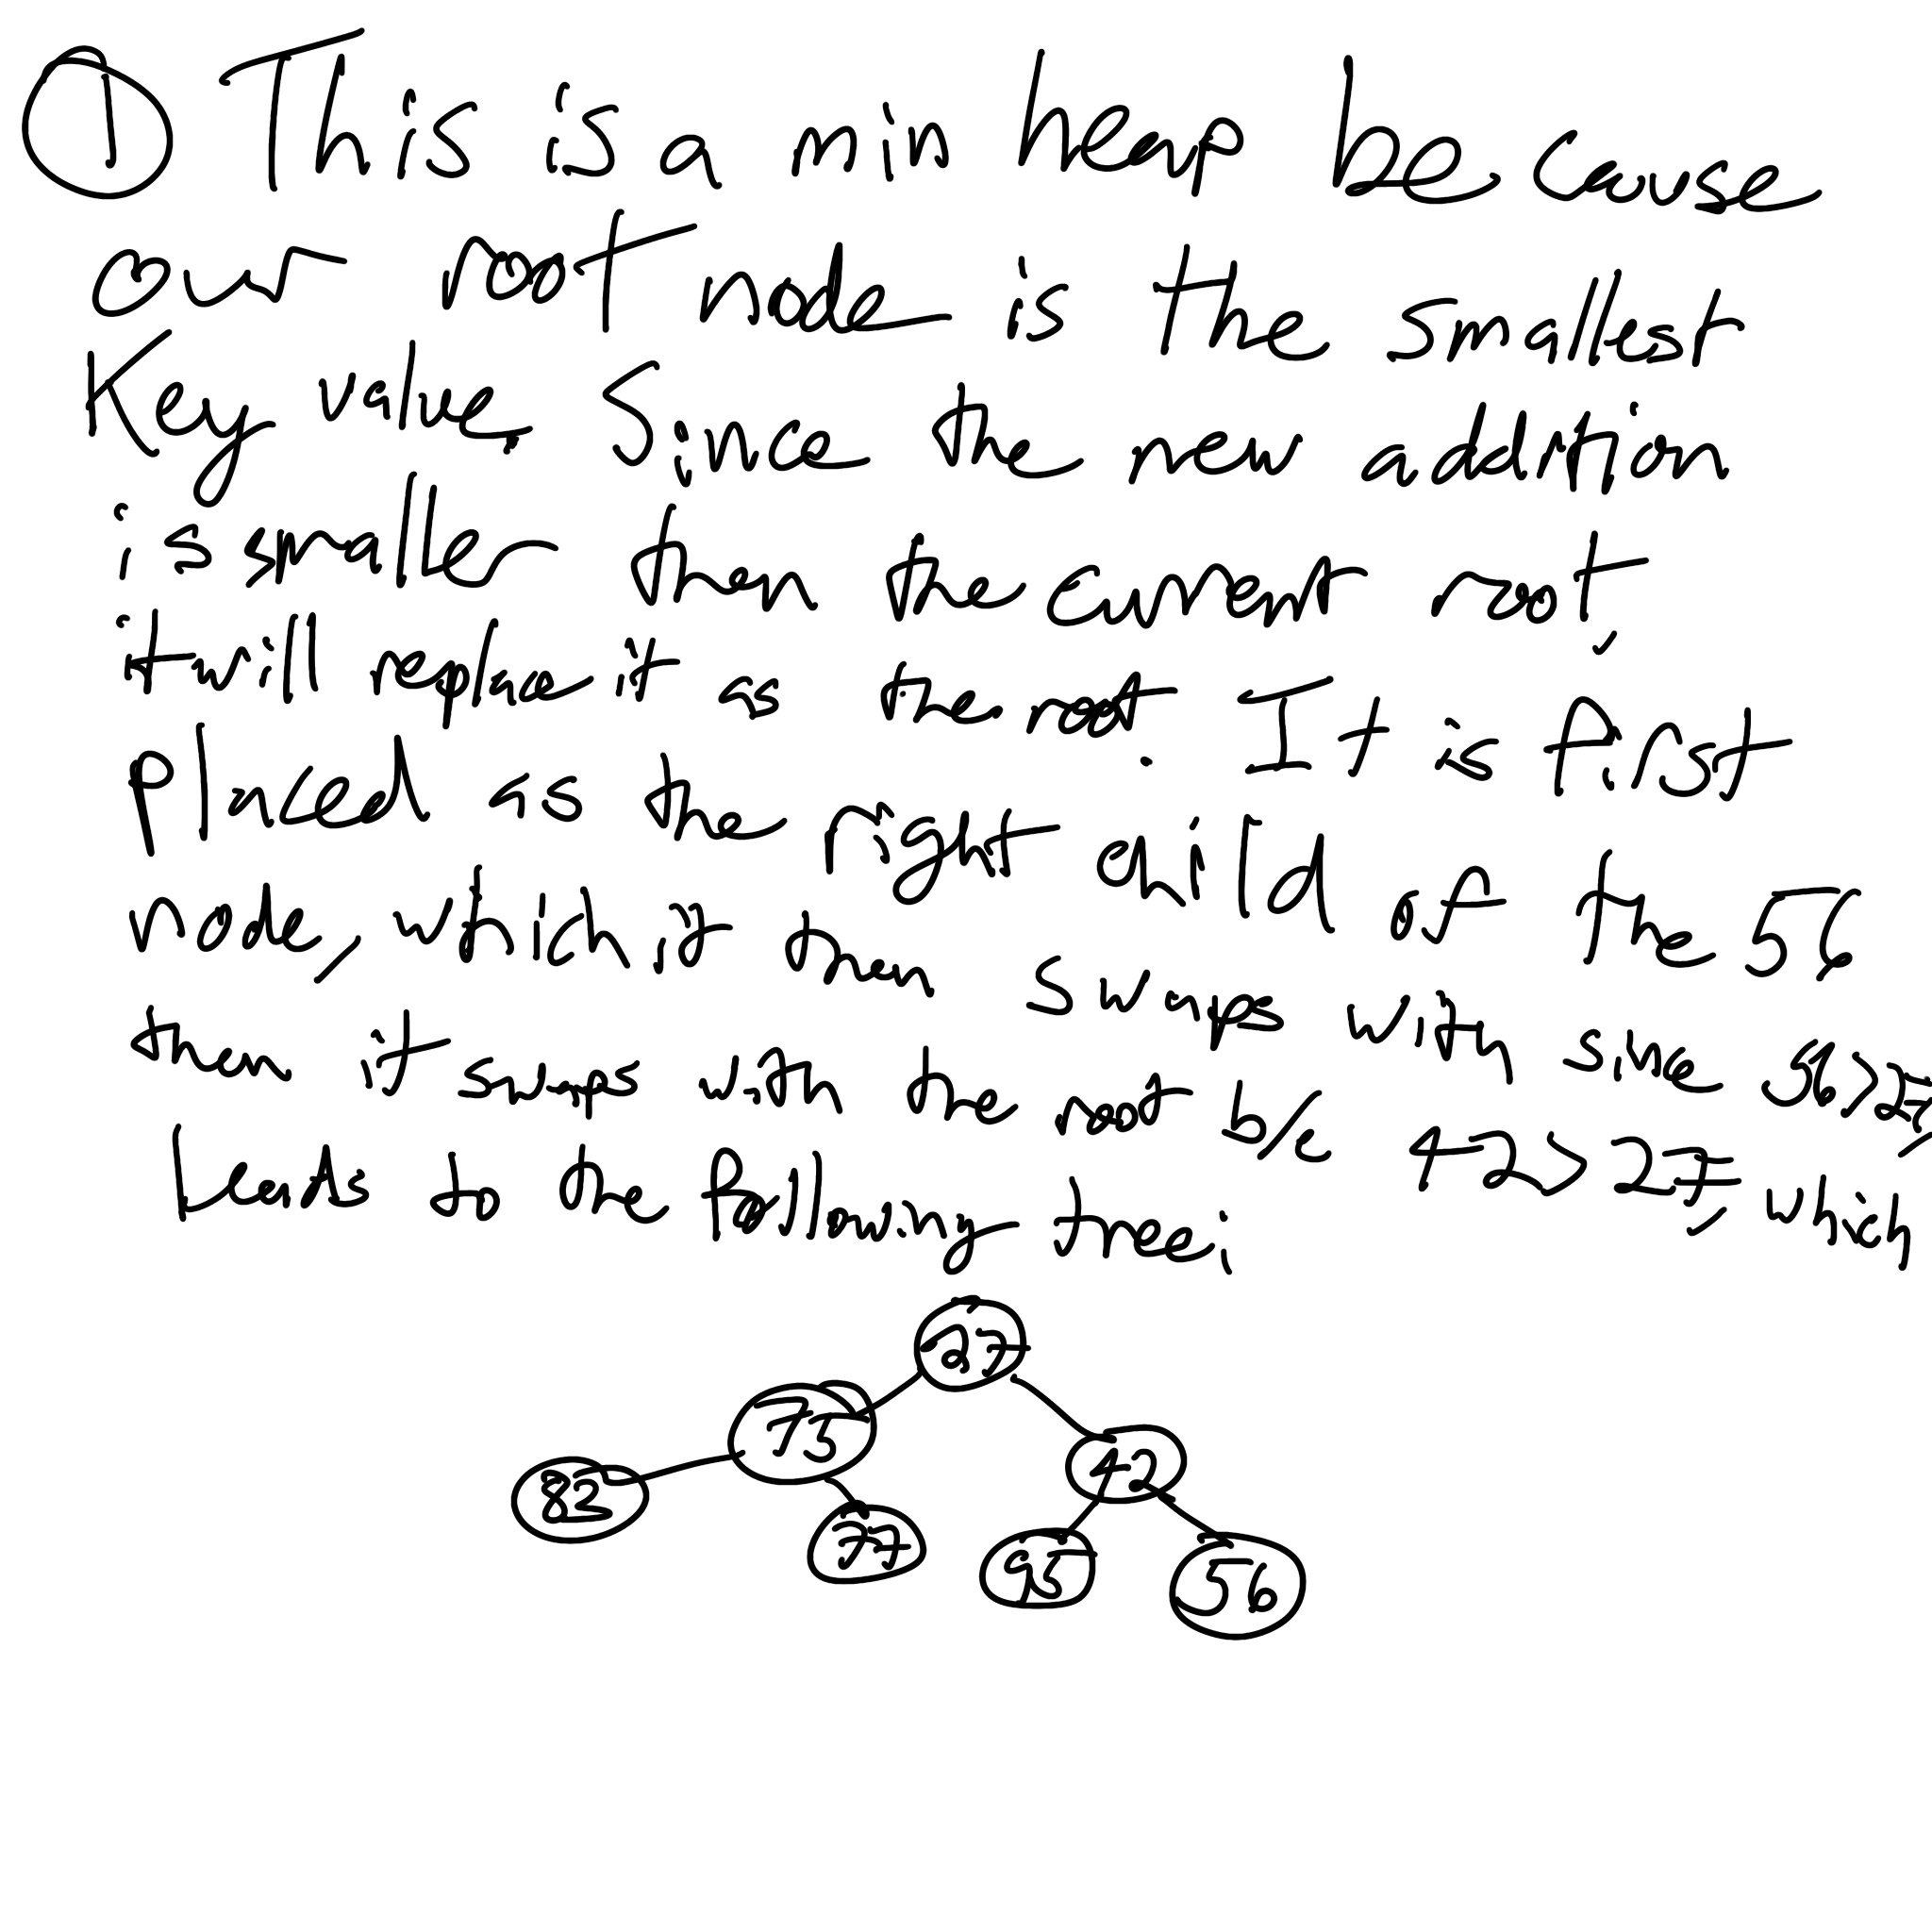 ① This is a min heap because
our root node is the smallest
Key value. Since the new addition
is smaller then the current root,
it will replace it as the root. It is first
placed as the right child of the 56
node, which it then swaps with since 56>27,
then it swaps with the root b/c 42>27, which
leads to the following tree:
27
75 42
82 77 95 56